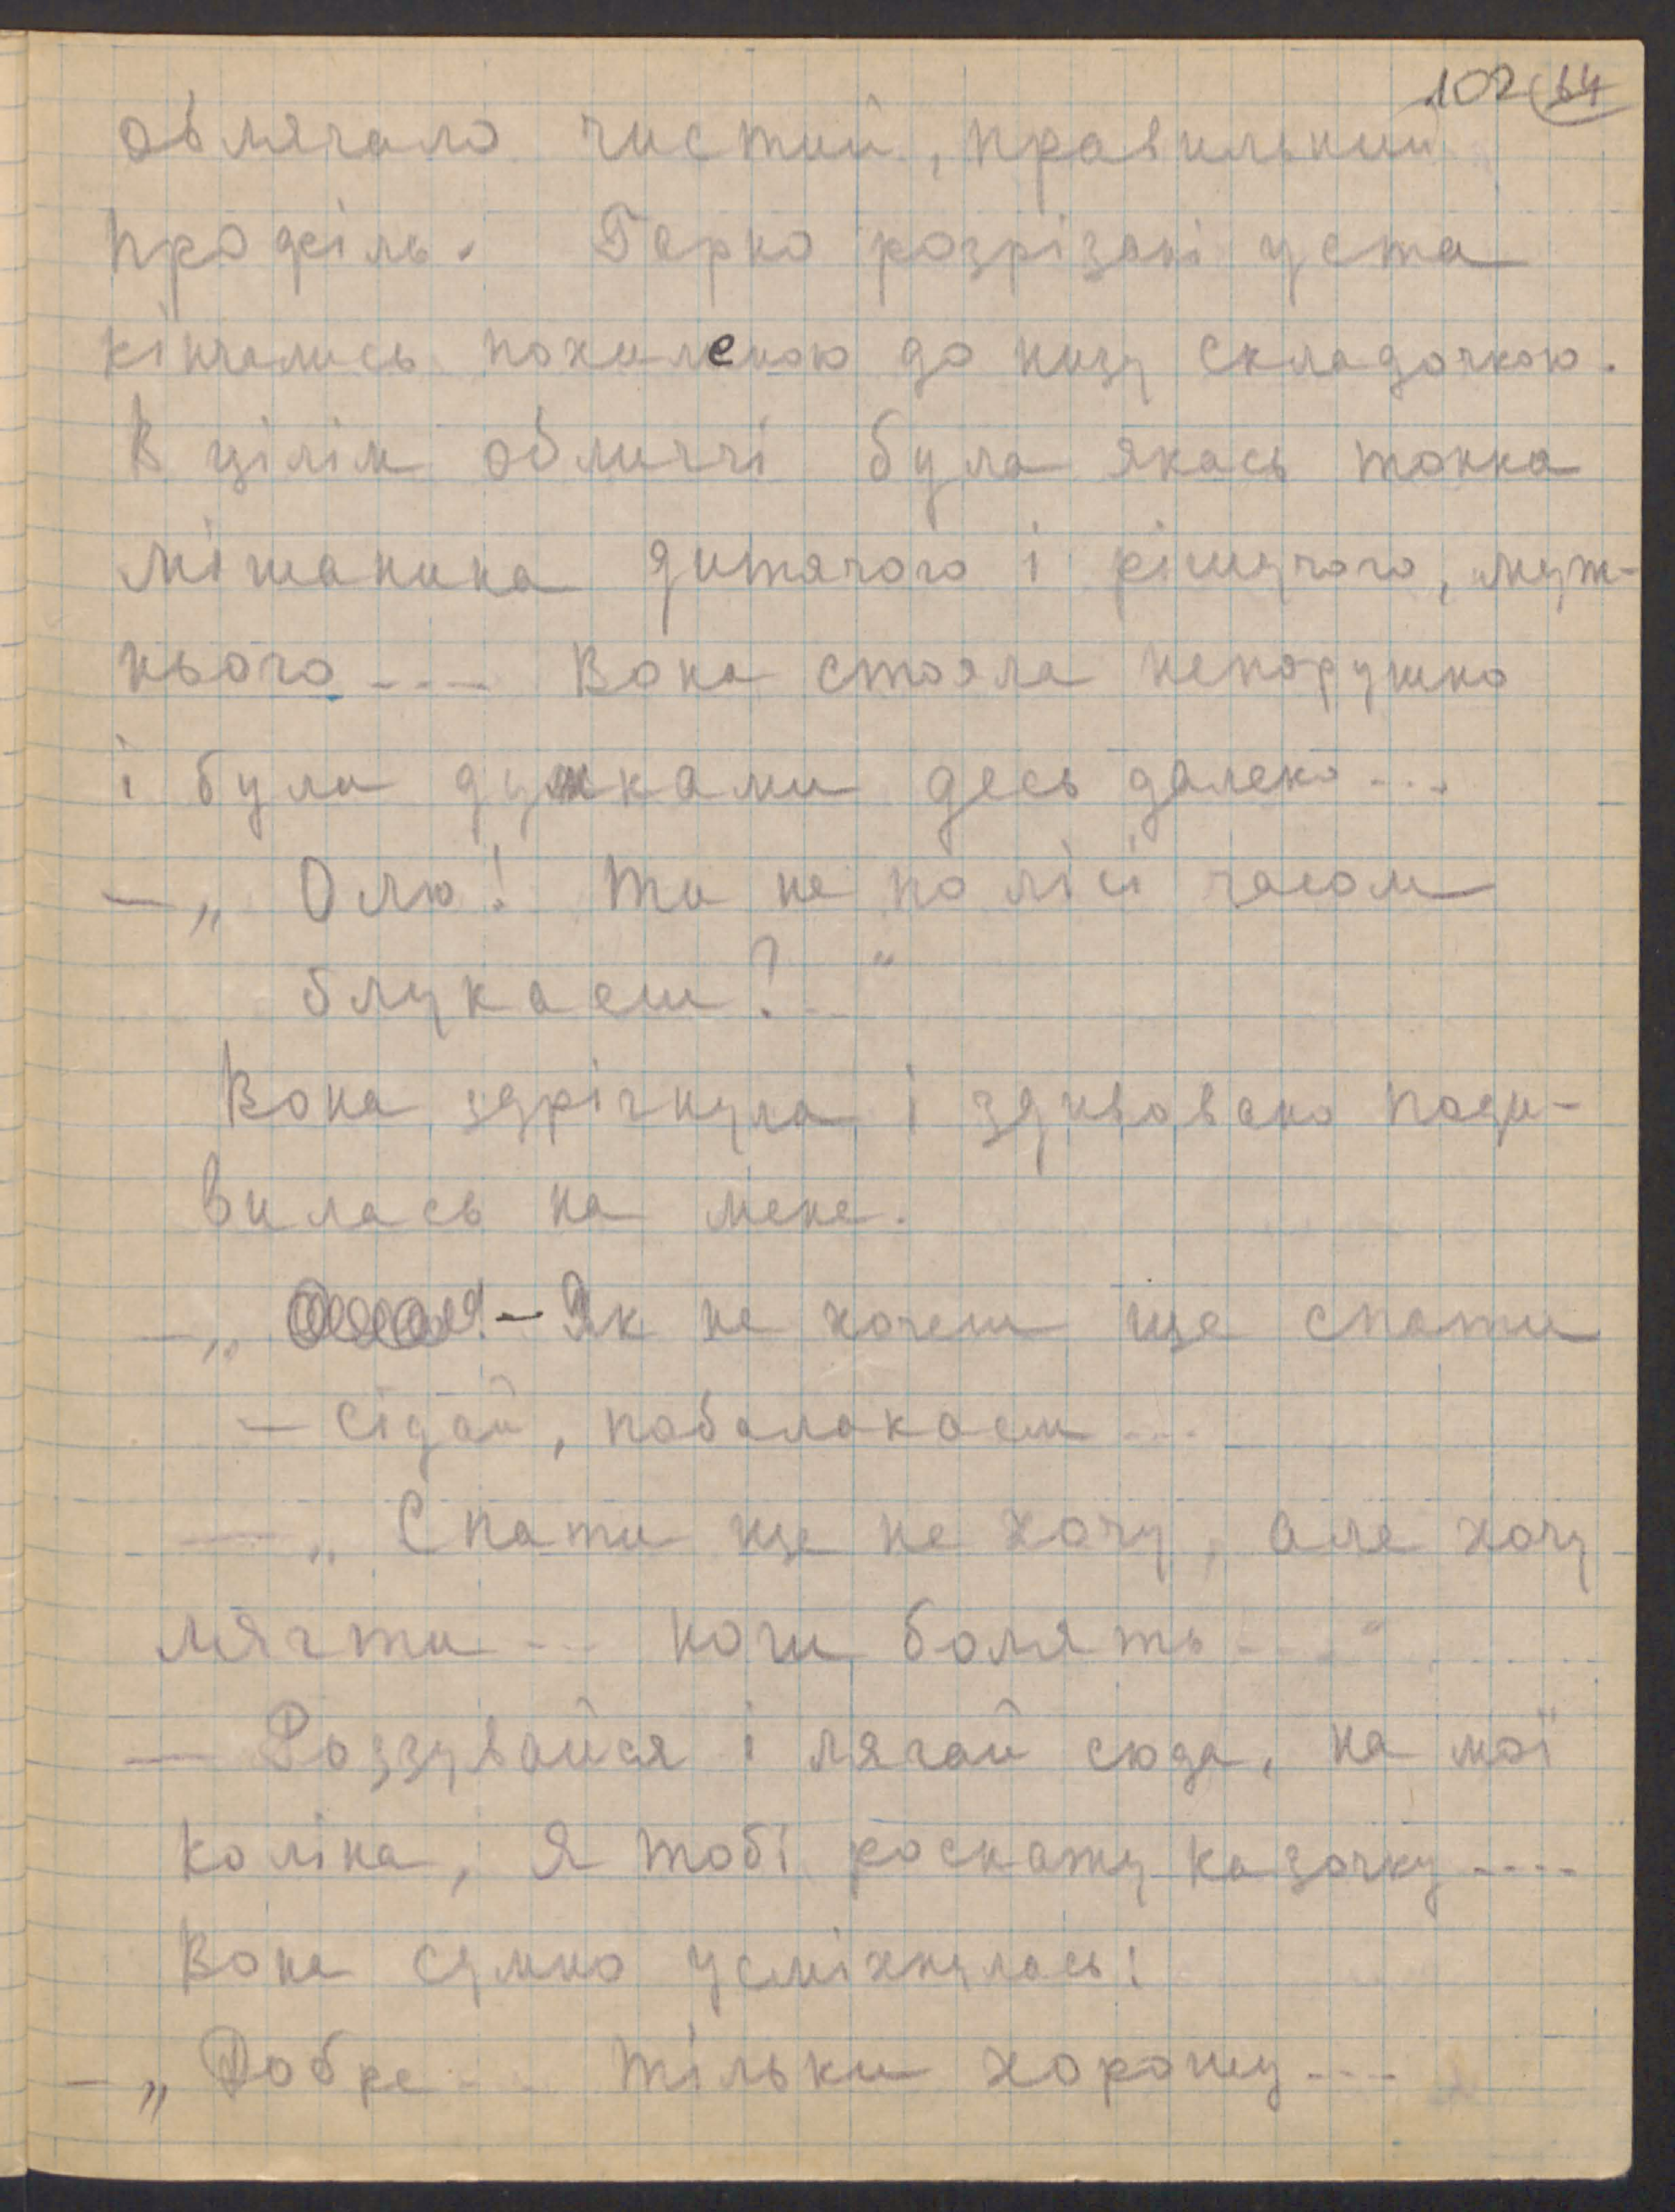 102 64
облягало чистий, правильний
профіль. Гарно розрізані уста
кінчались похиленою до низу складочкою.
В цілім обличчі була якась тонка
мішанина дитячого і рішучого, муж-
нього --- Вона стояла непорушно
і була думками десь далеко ---
— „ Олю! Ти не по лісі часом
блукаєш? .. "
Вона здрігнула і здивовано поди-
вилась на мене.
— „ - Як не хочеш ще спати
— сідай, побалакаєм ...
— „ Спати ще не хочу, але хочу
лягти --- ноги болять --- "
— Роззувайся і лягай сюда, на мої
коліна, я тобі роскажу казочку ----
Вона сумно усміхнулась:
— „ Добре --- тільки хорошу ---